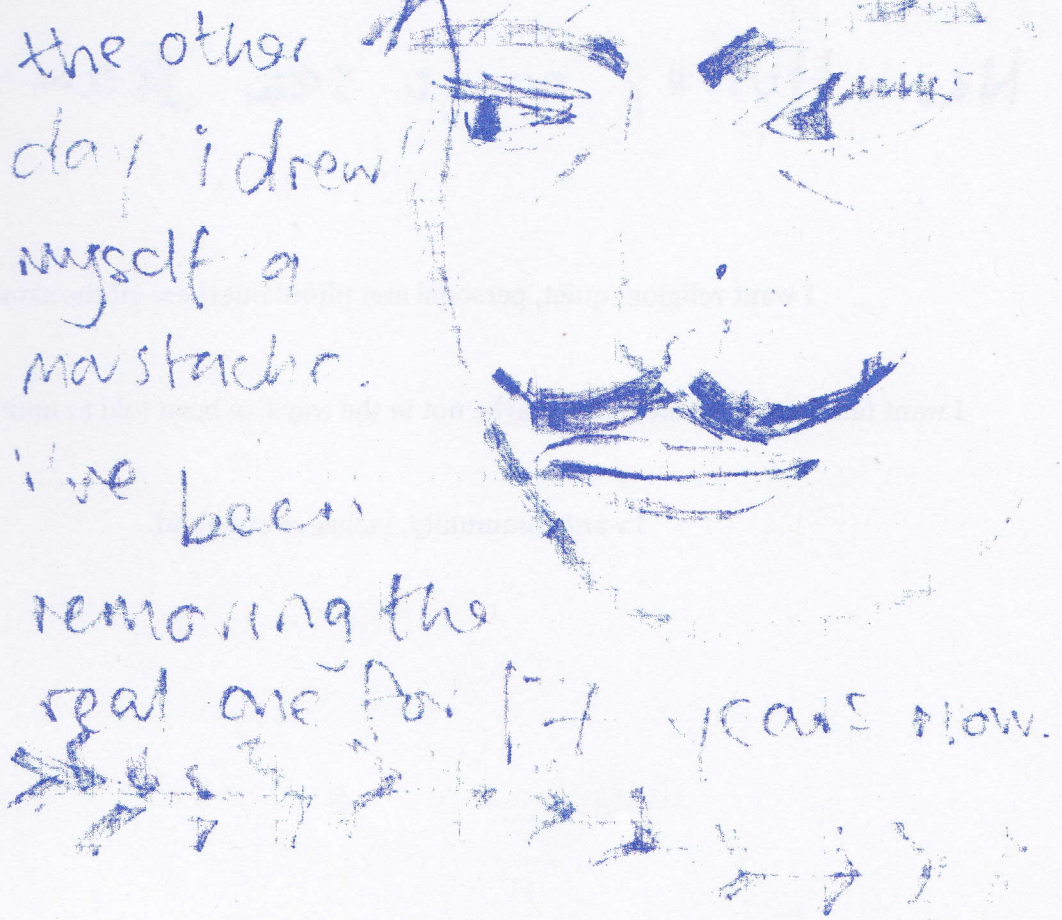 the other
day i drew
myself a
moustache.
i've been
removing the
real one for 17 years now.